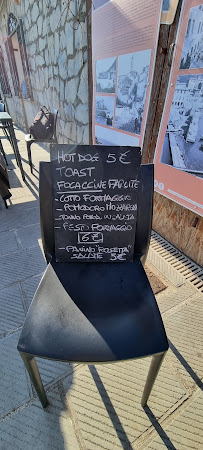 HOT DOG 5€
TOAST
FOCACCINE FARCITE
- COTTO FORMAGGIO
- POMODORO MOZZARELLA
- TONNO POMOD. INSALATA
- PESTO FORMAGGIO
6€
- PANINO ROSETTA
SALUTE 5€